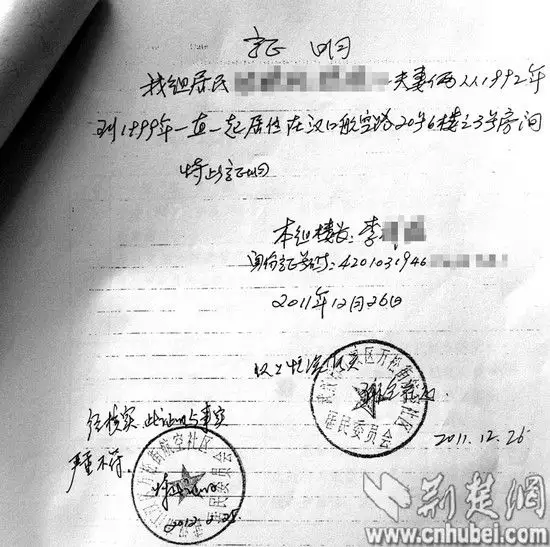 证明
我组居民 夫妻俩从1992年
到1999年一直一起居住在汉口航空路20号6楼之3号房间
特此证明
本组楼长:李
身份证号码:4201031946
2011年12月26日
以上情况
区万松街 社区
居民委员会
2011.12.26
经核实,此证明与事实
严重不符。
万松街航空社区
居民委员会
特此证明
2012.
荆楚网
www.cnhubei.com